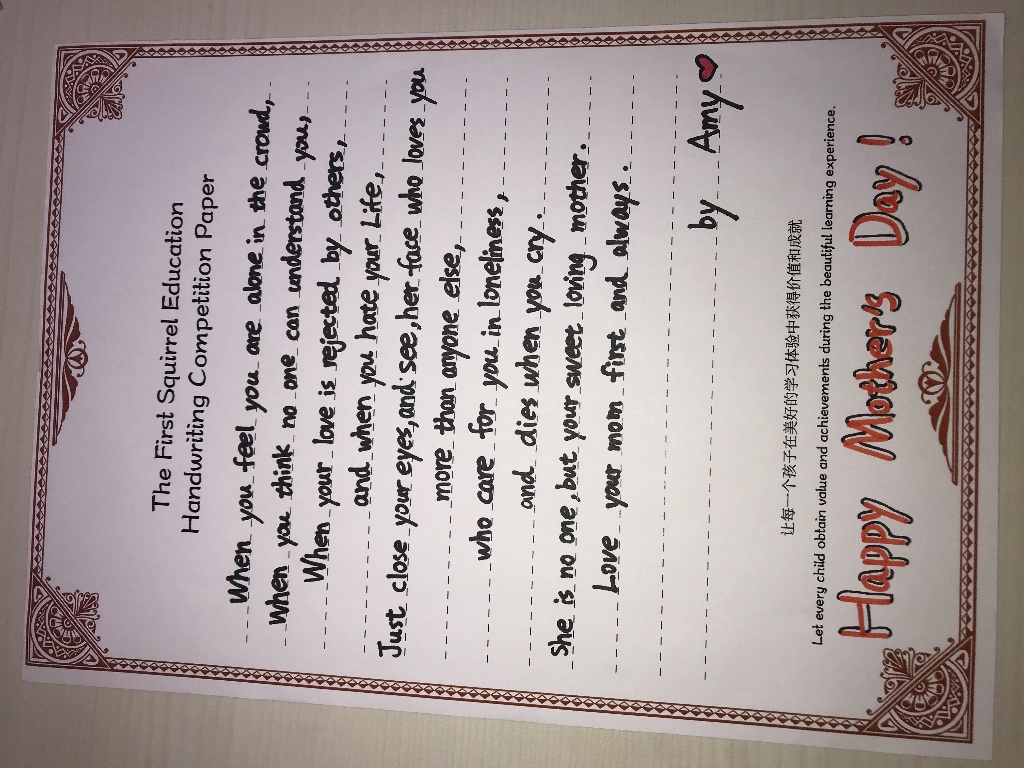 The First Squirrel Education
Handwriting Competition Paper
When you feel you are alone in the crowd,
When you think no one can understand you,
When your love is rejected by others,
and when you hate your Life,
Just close your eyes, and see, her face who loves you
more than anyone else,
who care for you in loneliness,
and dies when you cry.
She is no one, but your sweet loving mother.
Love your mom first and always.
by Amy
让每一个孩子在美好的学习体验中获得价值和成就
Let every child obtain value and achievements during the beautiful learning experience.
Happy Mother's Day!